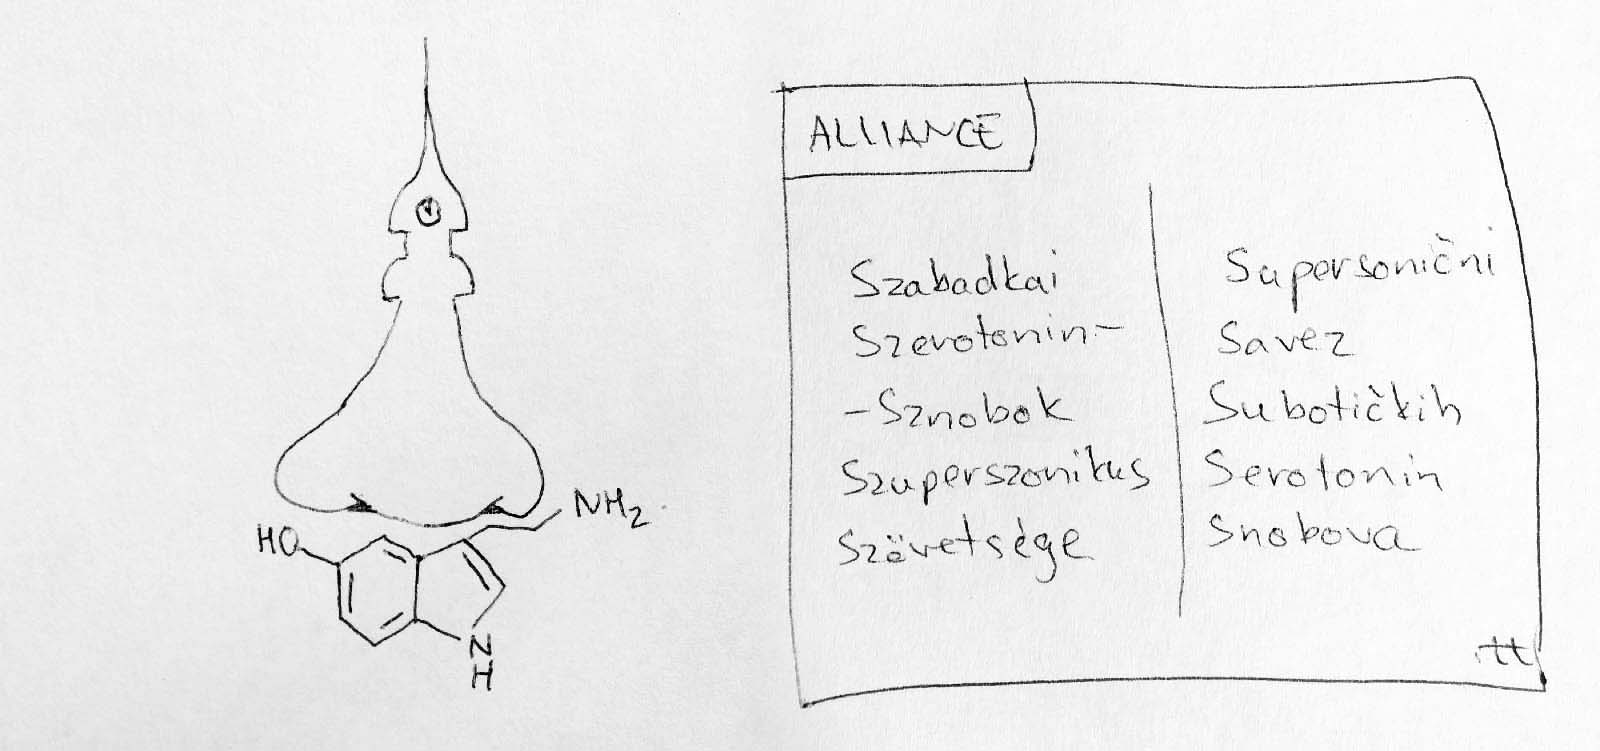 ALLIANCE
Szabadkai
Szerotonin-
-Sznobok
Szuperszonikus
Szövetsége
Supersonični
Savez
Subotičkih
Serotonin
Snobova
tt
HO
NH2
N
H